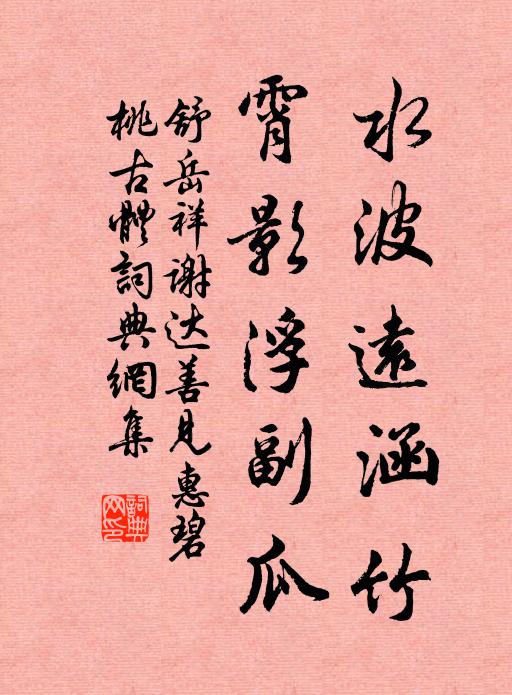 水波遠涵竹
霄影浮副瓜
舒岳祥谢达善見惠碧
桃古體詞典網集
詞典网印